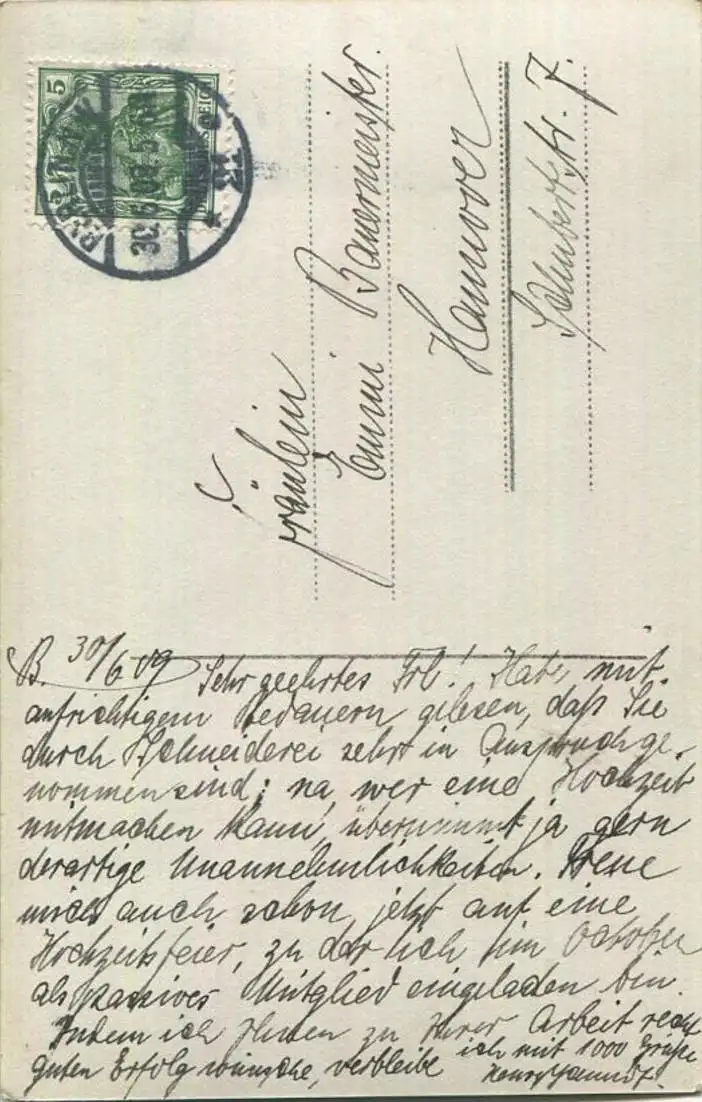 5
BERLIN W
30.6.09. 5-6N
Fräulein
Emmi Bauermeister.
Hannover
str. 7.
B. 30/6 09 Sehr geehrtes Frl! Habe mit
aufrichtigem Bedauern gelesen, daß Sie
durch Schneiderei sehr in Anspruch ge-
nommen sind; na, wer eine Hochzeit
mitmachen kann, übernimmt ja gern
derartige Unannehmlichkeiten. Freue
mich auch schon jetzt auf eine
Hochzeitsfeier, zu der ich im October
als passives Mitglied eingeladen bin.
Indem ich Ihnen zu Ihrer Arbeit recht
guten Erfolg wünsche, verbleibe ich mit 1000 Grüße